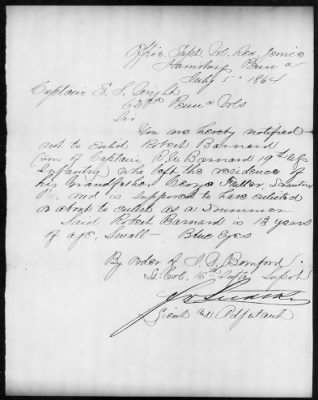 Office Supt. Vol. Rec. Service
Penn a
July 5" 1864
Captain E. S. Wright
62nd Penn a Vols
Sir
You are hereby notified
not to enlist Robert Barnard
son of Captain Barnard 19th
Infantry who left the residence of
his Grandfather George Fuller, Scranton
Pa. and is supposed to have enlisted
or about to enlist as a Drummer
Said Robert Barnard is 13 years
of age, Small - Blue Eyes
By order of T. D. Bomford
Lt. Col. 16th Infty Supt
Lieut & Adjutant